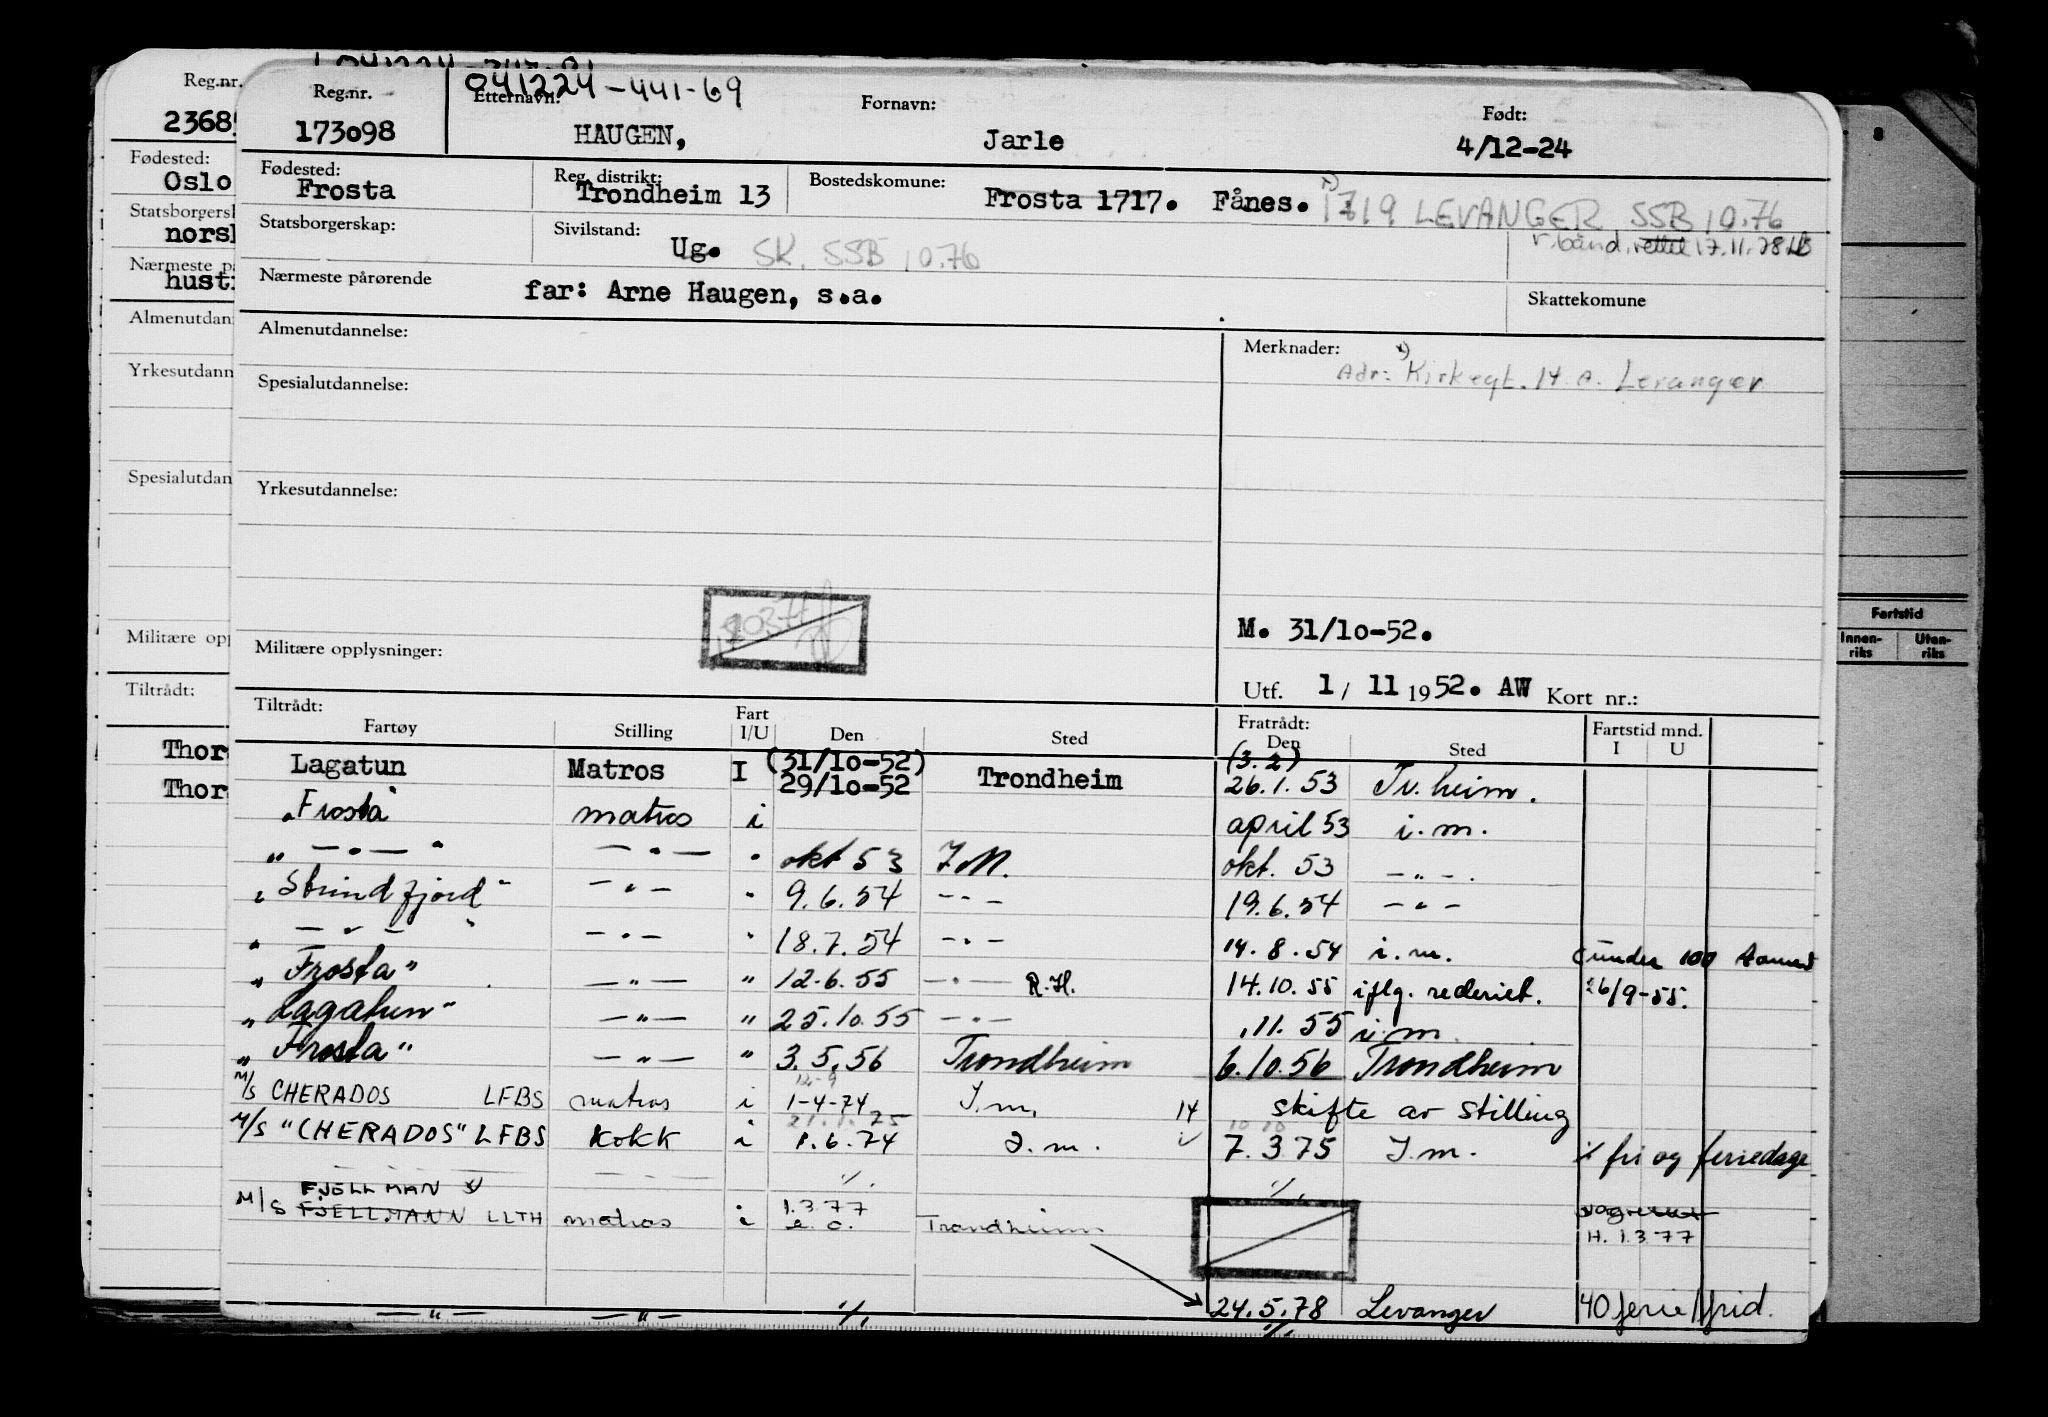 041224-441-69
Reg.nr. Etternavn: Fornavn: Født:
173098 HAUGEN, Jarle 4/12-24
Fødested: Reg. distrikt: Bostedskomune:
Frosta Trondheim 13 Frosta 1717. Fånes. x) 1719 LEVANGER SSB 10.76
Statsborgerskap: Sivilstand: Ug. SK. SSB 10.76 r.bånd. rettet 17.11.78
Nærmeste pårørende far: Arne Haugen, s.a. Skattekomune
Almenutdannelse: Merknader: x)
Adr: Kirkegt. 14. A. Levanger
Spesialutdannelse:
Yrkesutdannelse:
M. 31/10-52.
Militære opplysninger:
Utf. 1/ 11 1952. AW Kort nr.:
Tiltrådt: Fratrådt:
Fartøy Stilling Fart I/U Den Sted Den Sted Fartstid mnd. I U
(31/10-52) (3.2)
Lagatun Matros I 29/10-52 Trondheim 26.1.53 Tr.heim.
"Frosta" matros i april 53 i.m.
" — " — " — " — " okt 53 I.M. okt. 53 — " — .
" Strindfjord " — " — " 9.6.54 — " — 19.6.54 — " —
" — " — " — " — " 18.7.54 — " — 14.8.54 i.m. under 100 tonnes
" Frosta " — " — " 12.6.55 — " — R.H. 14.10.55 iflg. rederiet. 26/9-55.
" Lagatun " — " — " 25.10.55 — " — .11.55 i.m.
" Frosta " — " — " 3.5.56 Trondheim 6.10.56 Trondheim
M/S CHERADOS LFBS matros i 1-4-74 I.m. 14 skifte av stilling
M/S "CHERADOS" LFBS kokk i 1.6.74 I.m. 7.3.75 I.m. % fri og feriedage
FJELLMAN
M/S FJELLMANN LLTH matros i 1.3.77 e.o. Trondheim H. 1.3.77
— " — — " — 24.5.78 Levanger 40 ferie/frid.
Reg.nr.
Fødested:
Oslo
Almenutdan
Yrkesutdann
Spesialutdan
Militære opp
Tiltrådt:
Thor
Thor
8
Fartstid
Innen-riks Uten-riks